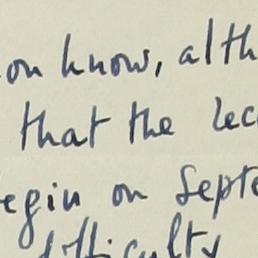 ou know, alth
that the lec
egin on Septe
difficulty